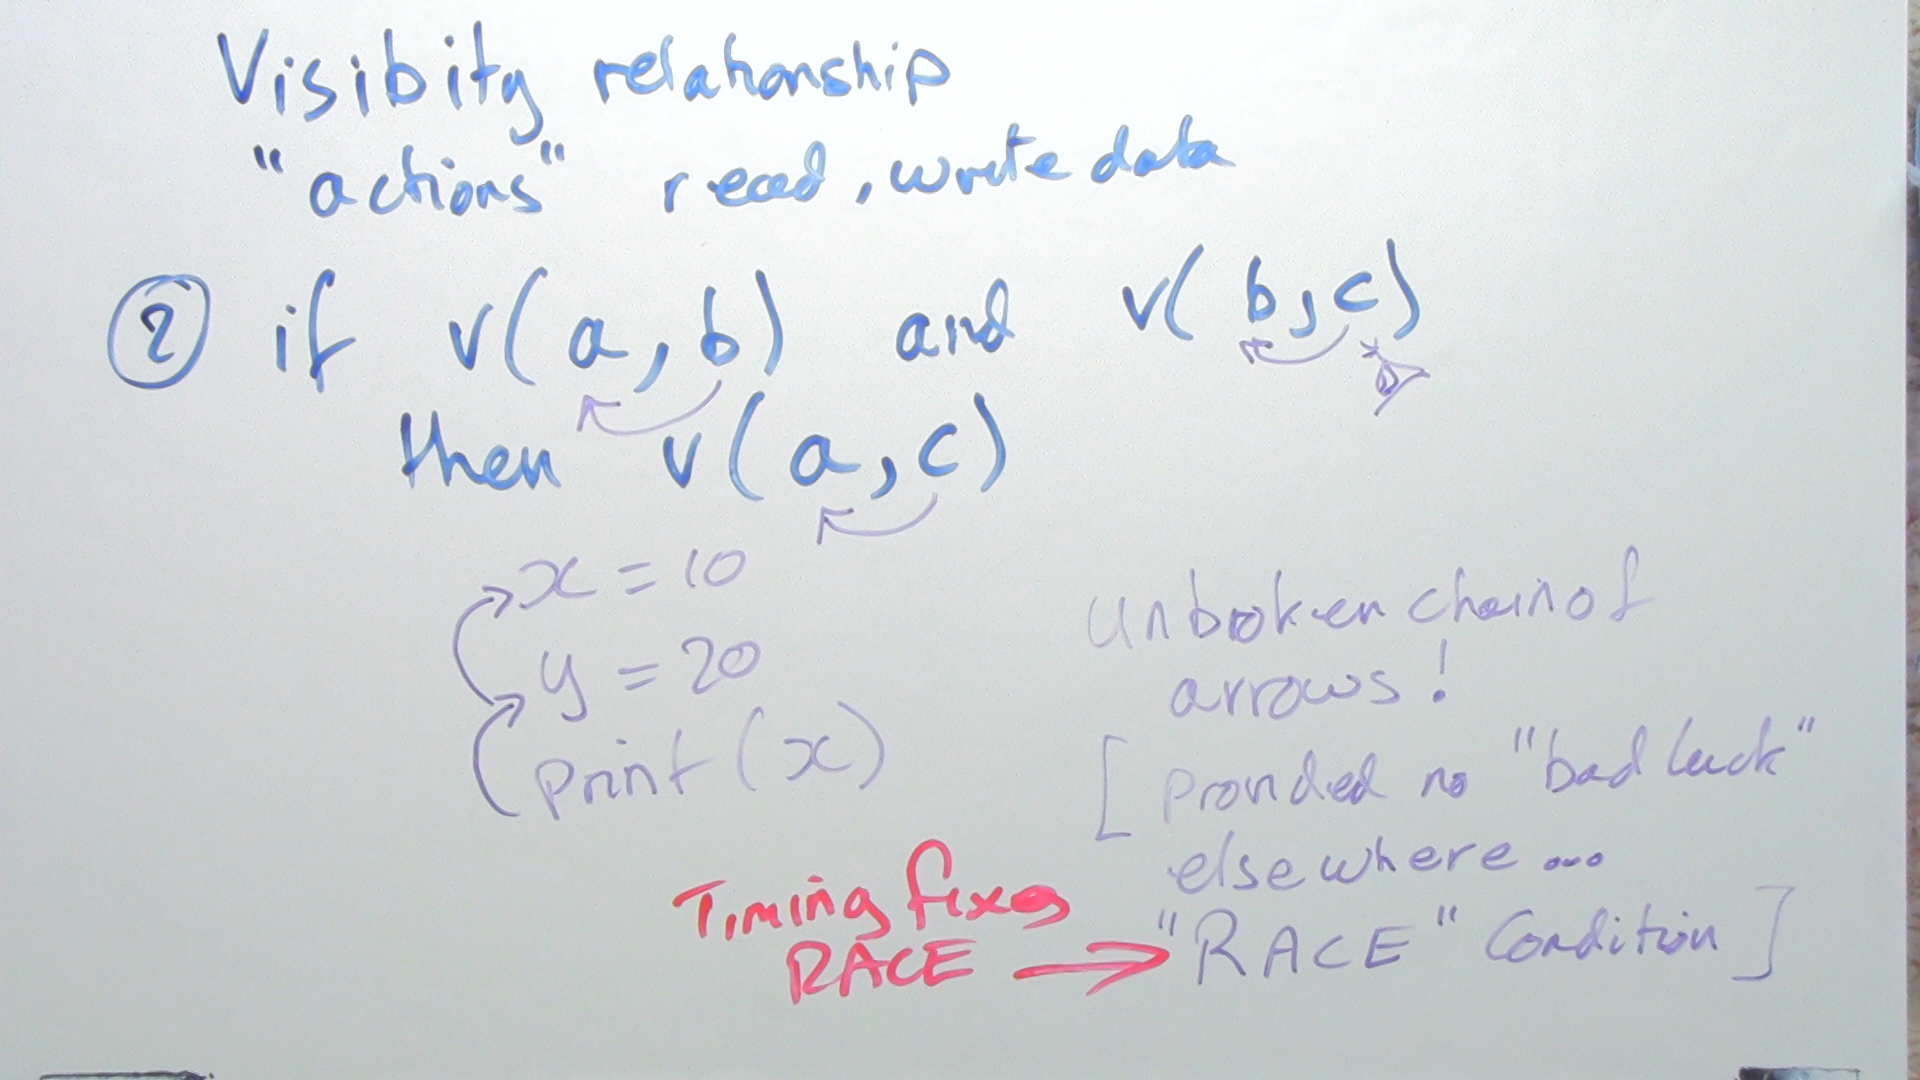 Visibity relationship
"actions" read, write data
② if v(a,b) and v(b,c)
then v(a,c)
x = 10
y = 20
print(x)
unbroken chain of
arrows!
[ provided no "bad luck"
elsewhere ...
"RACE" Condition ]
Timing fixes
RACE